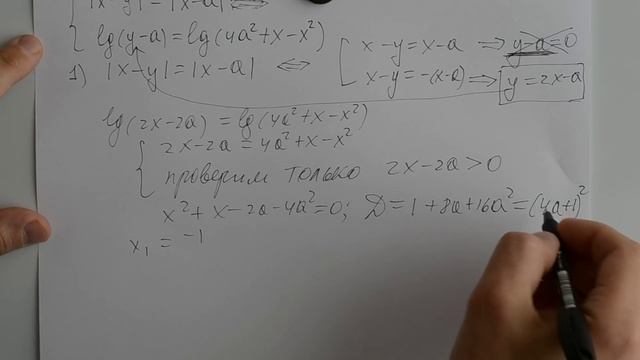 |x-y|=|x-a| ⇔
lg(y-a)=lg(4a²+x-x²)
1) |x-y|=|x-a| ⇔ [ x-y=x-a ⇒ y-a=0
x-y=-(x-a) ⇒ y=2x-a
lg(2x-2a)=lg(4a²+x-x²)
2x-2a=4a²+x-x²
проверим только 2x-2a>0
x²+x-2a-4a²=0; D=1+8a+16a²=(4a+1)²
x₁ = -1